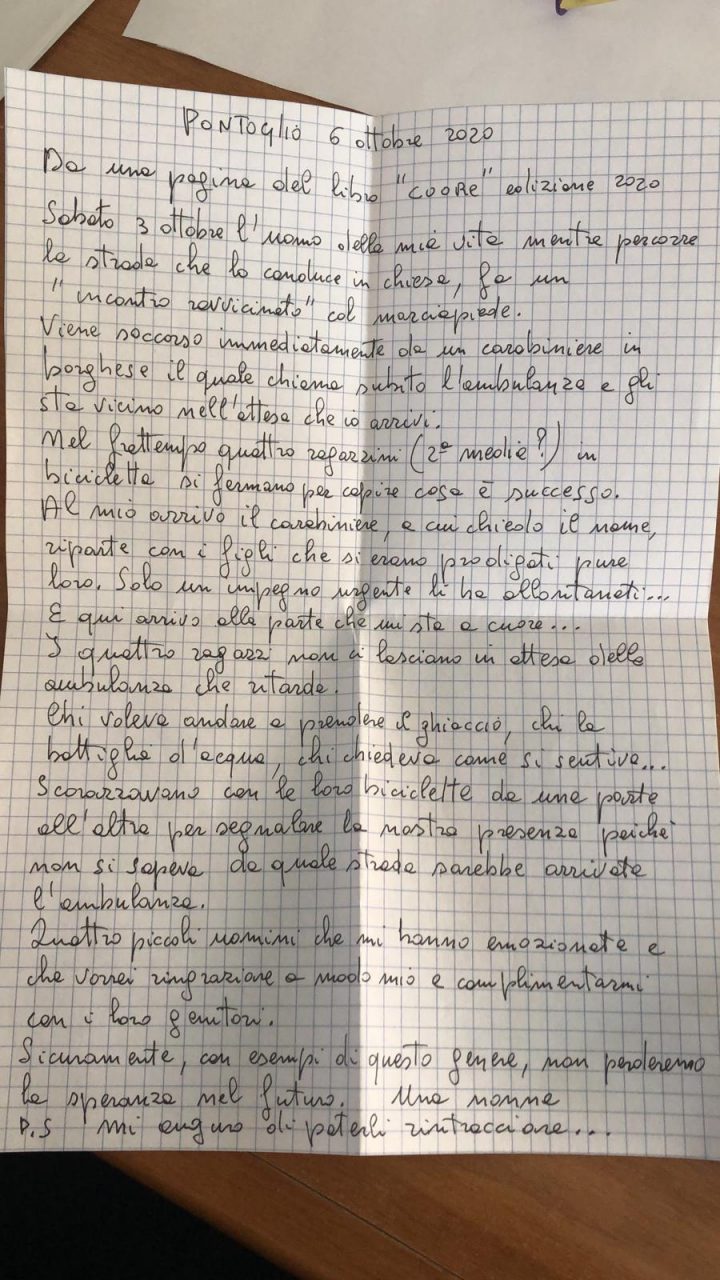 PONTOGLIO 6 ottobre 2020
Da una pagina del libro "CUORE" edizione 2020
Sabato 3 ottobre l'uomo della mia vita mentre percorre
la strada che lo conduce in chiesa, fa un
"incontro ravvicinato" col marciapiede.
Viene soccorso immediatamente da un carabiniere in
borghese il quale chiama subito l'ambulanza e gli
sta vicino nell'attesa che io arrivi.
Nel frattempo quattro ragazzini (2ª media?) in
bicicletta si fermano per capire cosa è successo.
Al mio arrivo il carabiniere, a cui chiedo il nome,
riparte con i figli che si erano prodigati pure
loro. Solo un impegno urgente li ha allontanati...
E qui arrivo alla parte che mi sta a cuore...
I quattro ragazzi non ci lasciano in attesa della
ambulanza che ritarda.
Chi voleva andare a prendere il ghiaccio, chi la
bottiglia d'acqua, chi chiedeva come si sentiva...
Scorazzavano con le loro biciclette da una parte
all'altra per segnalare la nostra presenza poichè
non si sapeva da quale strada sarebbe arrivata
l'ambulanza.
Quattro piccoli uomini che mi hanno emozionata e
che vorrei ringraziare a modo mio e complimentarmi
con i loro genitori.
Sicuramente, con esempi di questo genere, non perderemo
la speranza nel futuro. Una nonna
P.S mi auguro di poterli rintracciare...